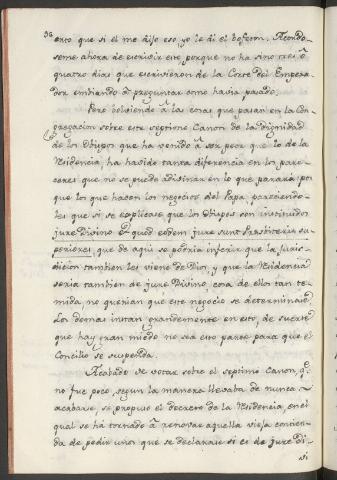 38
erto que si él me dijo eso yo le di el bofetm. Acordo-
seme ahora de escrivir esto porque no ha sino tres ò
quatro dias que escrivieron de la Corte del Empera-
dor embiando à preguntar como havia pasado.
Pero bolviendo à las cosas que pasan en la Con-
gregacion sobre este septimo Canon de la dignidad
de los Obispos que ha venido à ser peor que lo de la
Residencia, ha havido tanta diferencia en los pare-
ceres que no se puede adivinar en lo que parará: por
que los que hacen los negocios del Papa pareciendo-
les que si se explicase que los Obispos son instituidos
jure Divino & quod eodem jure sunt Prasbiteris su-
periores, que de aqui se podria inferir que la Juris-
dicion tambien les viene de Dios, y que la Residencia
seria tambien de jure Divino, cosa de ellos tan te-
mida no querian que este negocio se determinase.
Los demas instan grandemente en esto, de suerte
que hay gran miedo no sea esto parte para que el
Concilio se suspenda.
Acabado de votar sobre el septimo Canon, q.e
no fue poco, segun la manera llevaba de nunca
acabarse, se propuso el decreto de la Residencia, en el
qual se ha tornado à renovar aquella vieja contien-
da de pedir unos que se declarase si es de jure Di-
vi